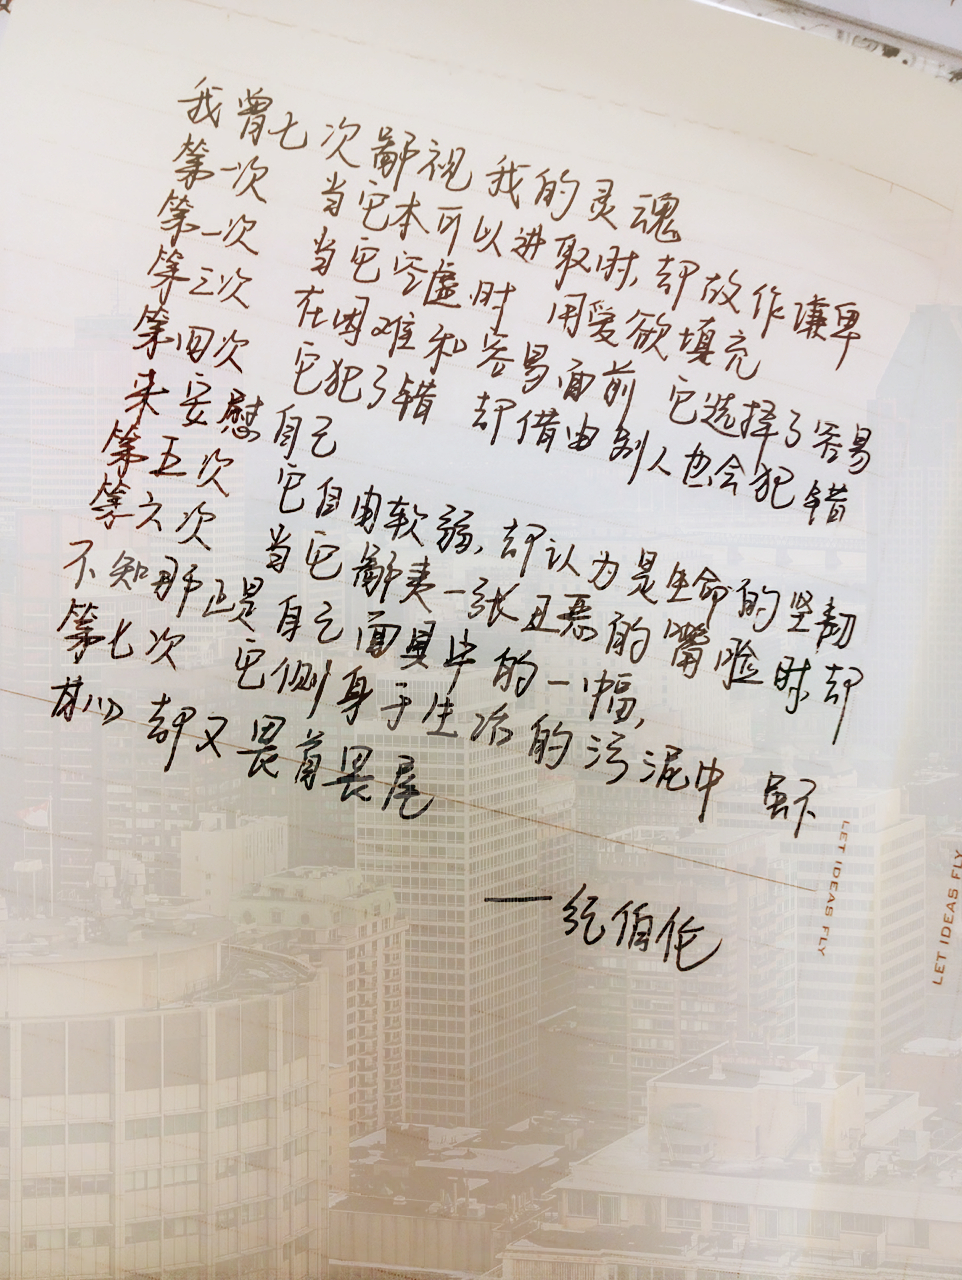 我曾七次鄙视我的灵魂
第一次 当它本可以进取时,却故作谦卑
第二次 当它空虚时 用爱欲填充
第三次 在困难和容易面前 它选择了容易
第四次 它犯了错 却借由别人也会犯错
来安慰自己
第五次 它自由软弱,却认为是生命的坚韧
第六次 当它鄙夷一张丑恶的嘴脸时却
不知那正是自己面具中的一幅,
第七次 它侧身于生活的污泥中 虽不
甘心 却又畏首畏尾
——纪伯伦
LET IDEAS FLY
LET IDEAS FLY